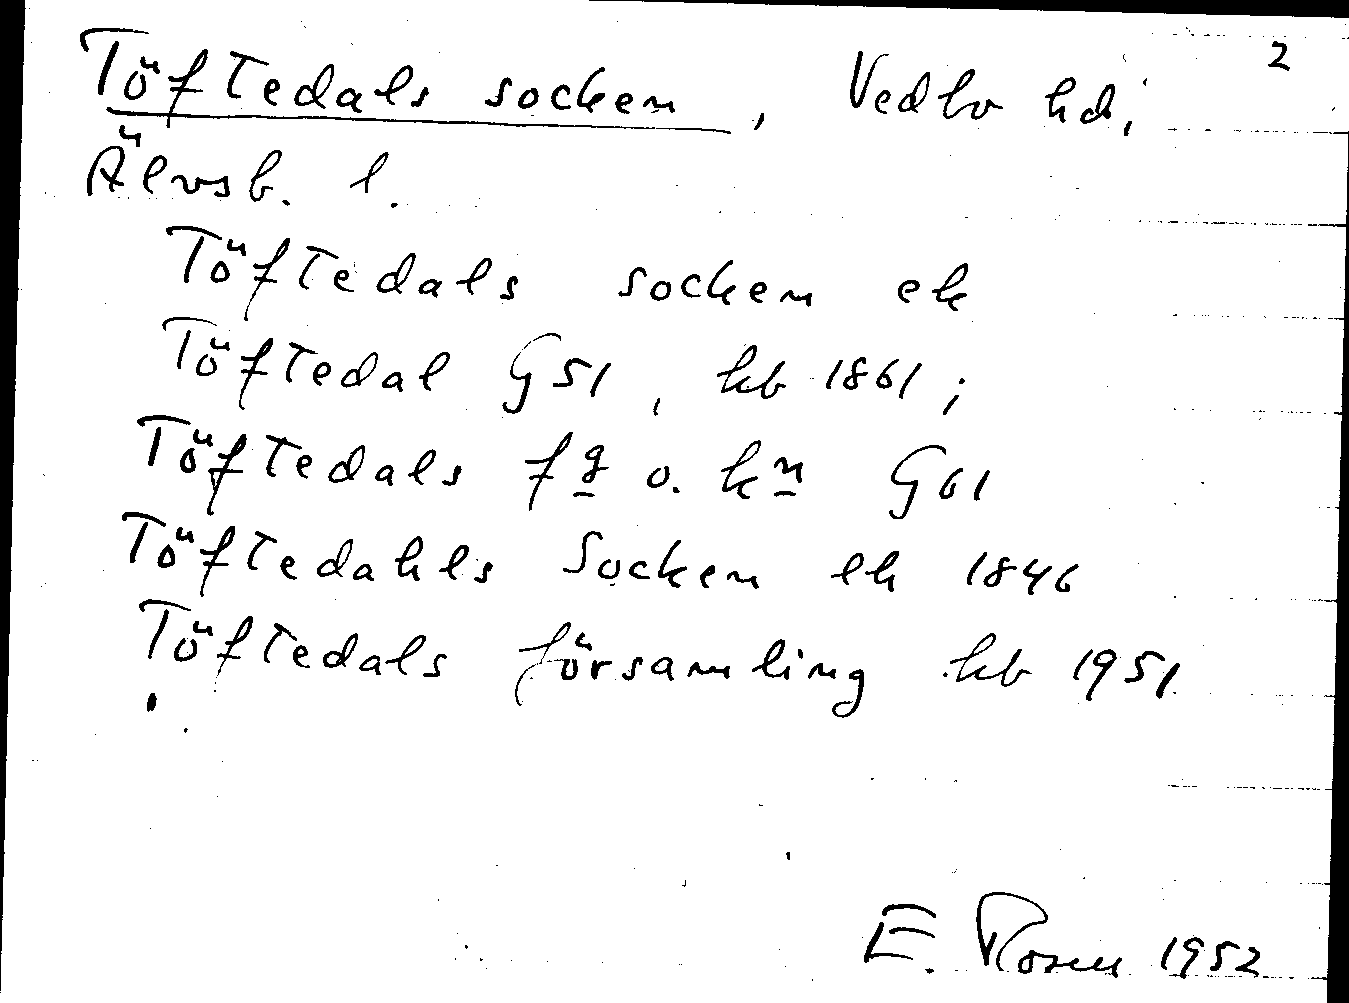 2
Töftedals socken, Vedbo hd,
Älvsb. l.
Töftedals socken ek
Töftedal G51, kb 1861;
Töftedals fg o. kn G61
Töftedahls Socken ek 1846
Töftedals församling kb 1951
E. Rosen 1952